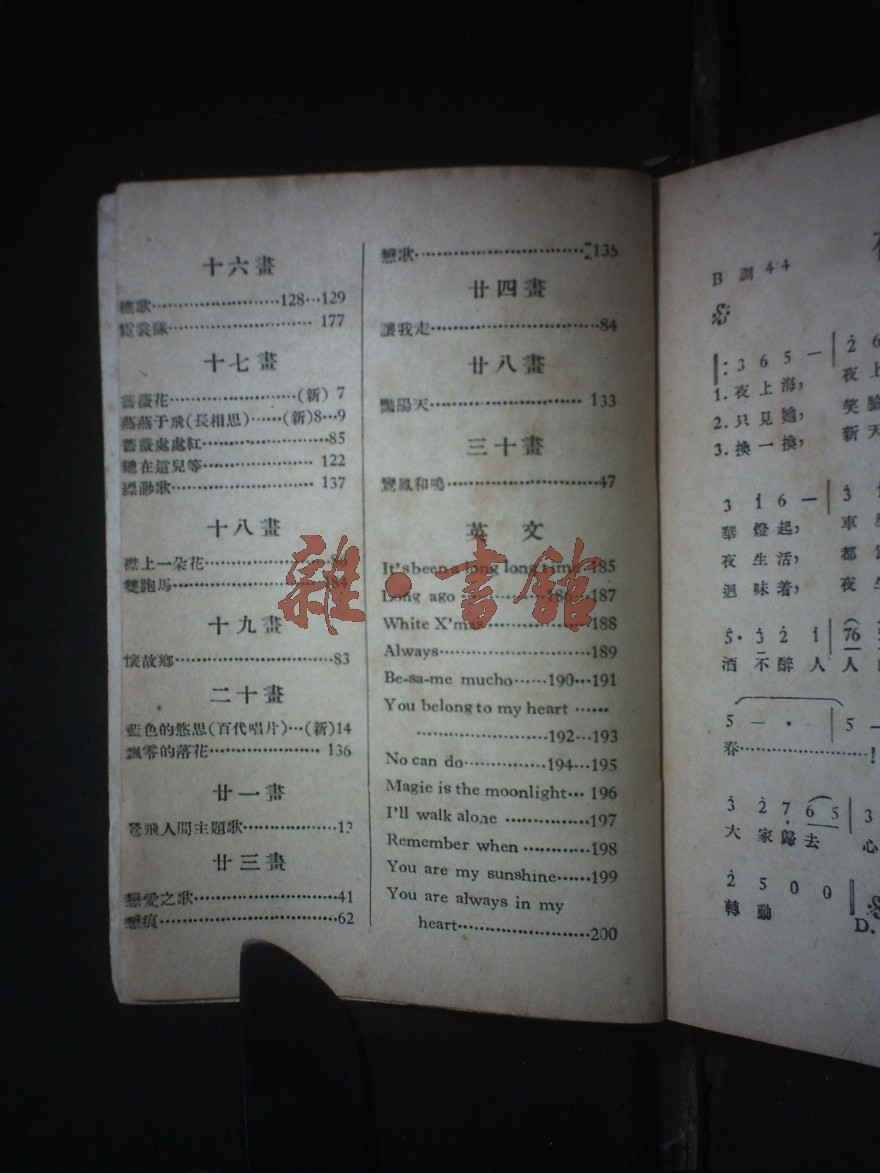 十六畫
樵歌……………………128…129
霓裳隊……………………177
十七畫
薔薇花………………(新) 7
燕燕于飛(長相思)……(新)8…9
薔薇處處紅…………………85
聰在這兒等………………122
縹渺歌……………………137
十八畫
襟上一朵花…………………86
雙跑馬……………………184
十九畫
懷故鄉………………………83
二十畫
藍色的悠思(百代唱片)…(新)14
飄零的落花………………136
廿一畫
鶯飛人間主題歌……………12
廿三畫
戀愛之歌……………………41
戀痕…………………………62
戀歌………………………135
廿四畫
讓我走………………………84
廿八畫
豔陽天……………………133
三十畫
鸞鳳和鳴……………………47
英文
It's been a long long time 185
Long ago …………186…187
White X'mas………………188
Always……………………189
Be-sa-me mucho……190…191
You belong to my heart ……
…………………192…193
No can do……………194…195
Magie is the moonlight… 196
I'll walk alone ……………197
Remember when …………198
You are my sunshine……199
You are always in my
heart……………………200
雜·書館
B 調 4/4
3 6 5 — | 2 6
1. 夜上海, 夜上
2. 只見她, 笑臉
3. 換一換, 新天
3 1 6 — | 3
華燈起, 車
夜生活, 都
迴味着, 夜
5· 3 2 1 | (76
酒不醉人人
5 — · — | 5 —
春………………!
3 2 7 6 5 | 3
大家歸去 心
2 5 0 0 ||
轉動
D.